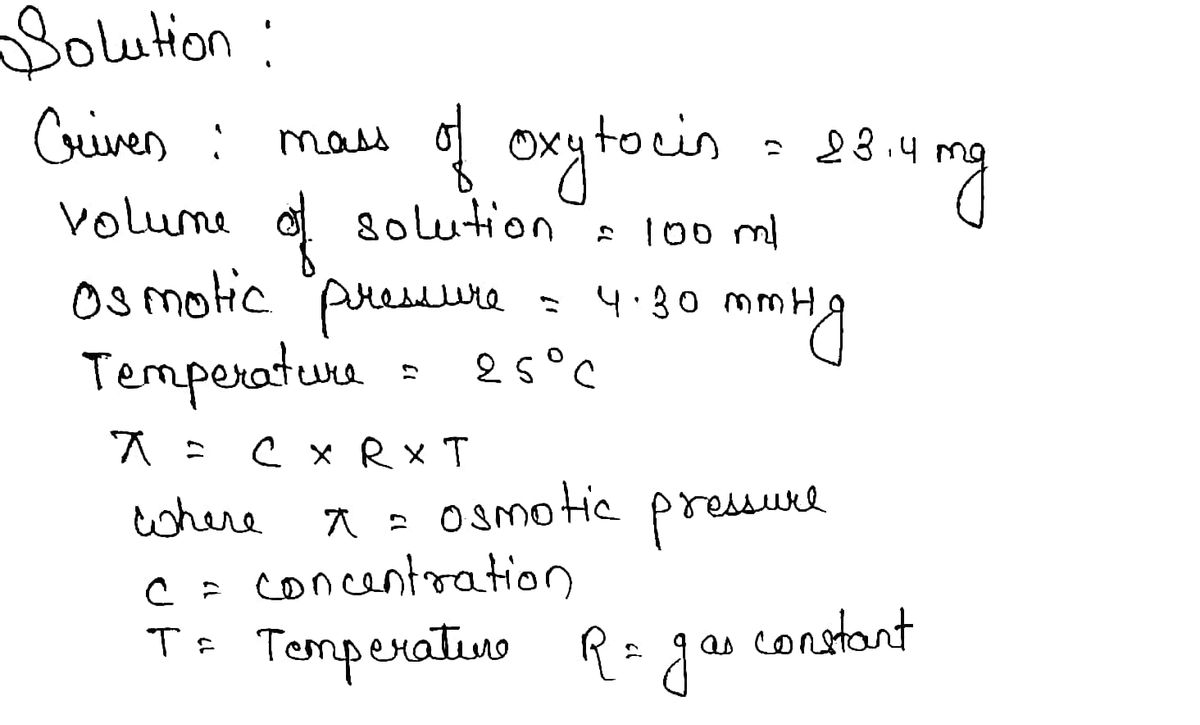 Solution :
Given : mass of oxytocin = 23.4 mg
Volume of solution = 100 ml
Osmotic pressure = 4.30 mmHg
Temperature = 25°C
π = C × R × T
where π = osmotic pressure
C = concentration
T = Temperature R = gas constant